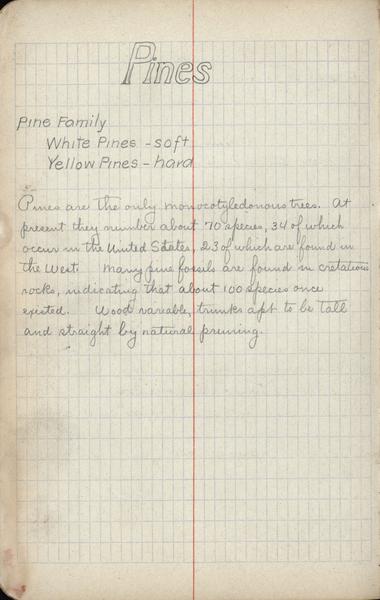 Pines
Pine Family
White Pines - soft
Yellow Pines - hard
Pines are the only monocotyledonous trees. At
present they number about 70 species, 34 of which
occur in the United States, 23 of which are found in
the West. Many pine fossils are found in cretatious
rocks, indicating that about 100 species once
existed. Wood variable, trunks apt to be tall
and straight by natural pruning.